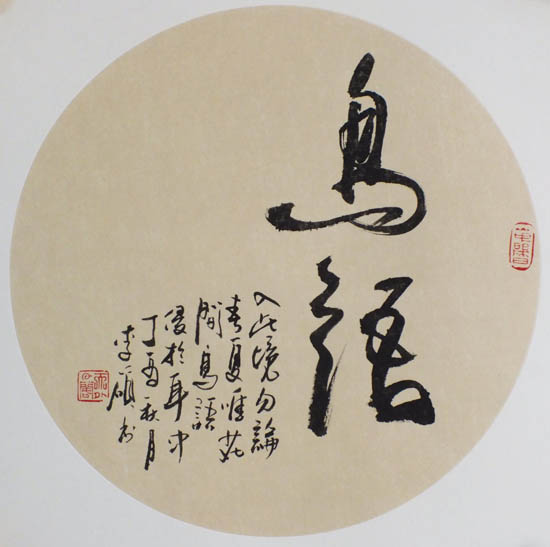 鳥語
入此境勿論
春夏唯花
間鳥語
於耳中
丁酉秋月
李碩书